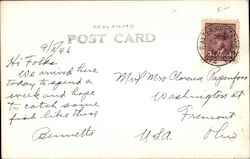 REAL PHOTO
POST CARD
9/8/46
Hi Folks.
We arrived here
today to spend a
week and hope
to catch some
fish like this
Bennetts
Mr & Mrs Clarence
Washington St
Fremont
U.S.A. Ohio